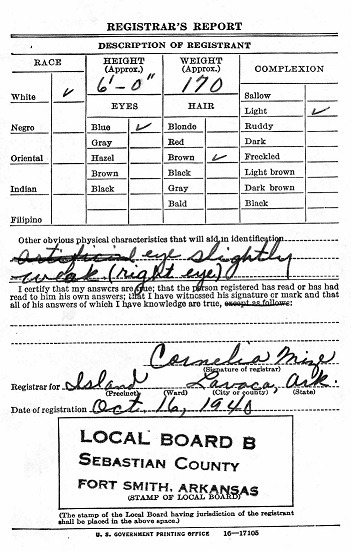 REGISTRAR'S REPORT
DESCRIPTION OF REGISTRANT
RACE
HEIGHT (Approx.)
WEIGHT (Approx.)
COMPLEXION
6'-0"
170
White ✓
EYES
HAIR
Sallow
Light ✓
Negro
Blue ✓
Blonde
Ruddy
Gray
Red
Dark
Oriental
Hazel
Brown ✓
Freckled
Brown
Black
Light brown
Indian
Black
Gray
Dark brown
Bald
Black
Filipino
Other obvious physical characteristics that will aid in identification
artificial eye slightly
weak (right eye)
I certify that my answers are true; that the person registered has read or has had
read to him his own answers; that I have witnessed his signature or mark and that
all of his answers of which I have knowledge are true, except as follows:
Cornelia Mize
(Signature of registrar)
Registrar for Island Lavaca, Ark.
(Precinct) (Ward) (City or county) (State)
Date of registration Oct. 16, 1940
LOCAL BOARD B
SEBASTIAN COUNTY
FORT SMITH, ARKANSAS
(STAMP OF LOCAL BOARD)
(The stamp of the Local Board having jurisdiction of the registrant
shall be placed in the above space.)
U. S. GOVERNMENT PRINTING OFFICE 16—17105